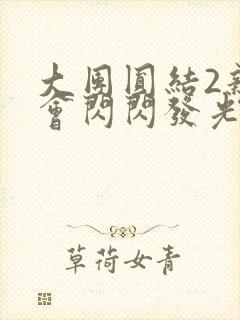 大團圓結2新
會閃閃發光
草荷女青